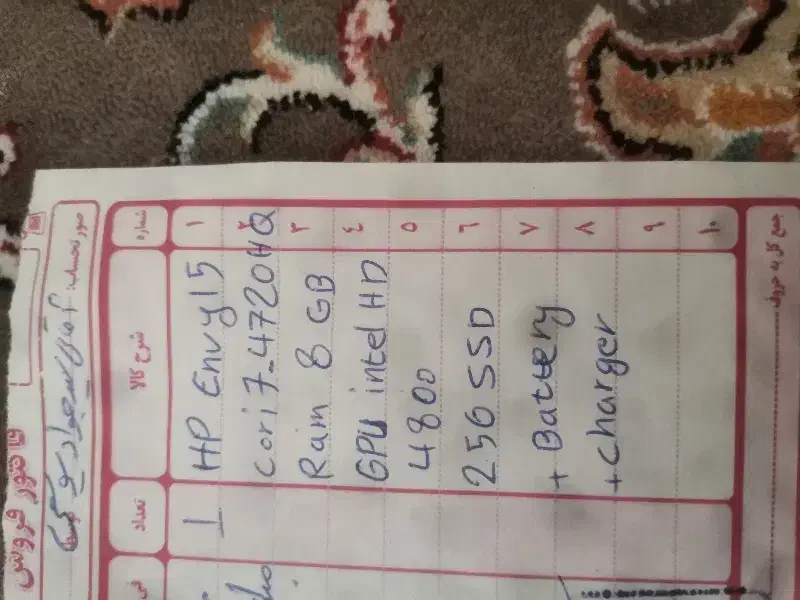 فاکتور فروش
صورتحساب: آقای
شماره
شرح کالا
تعداد
۱
HP Envy15
1
۲
Cori7-4720HQ
۳
Ram 8 GB
۴
GPU intel HD
۵
4800
۶
256 SSD
۷
+ Battery
۸
+ charger
۹
۱۰
جمع کل به حروف